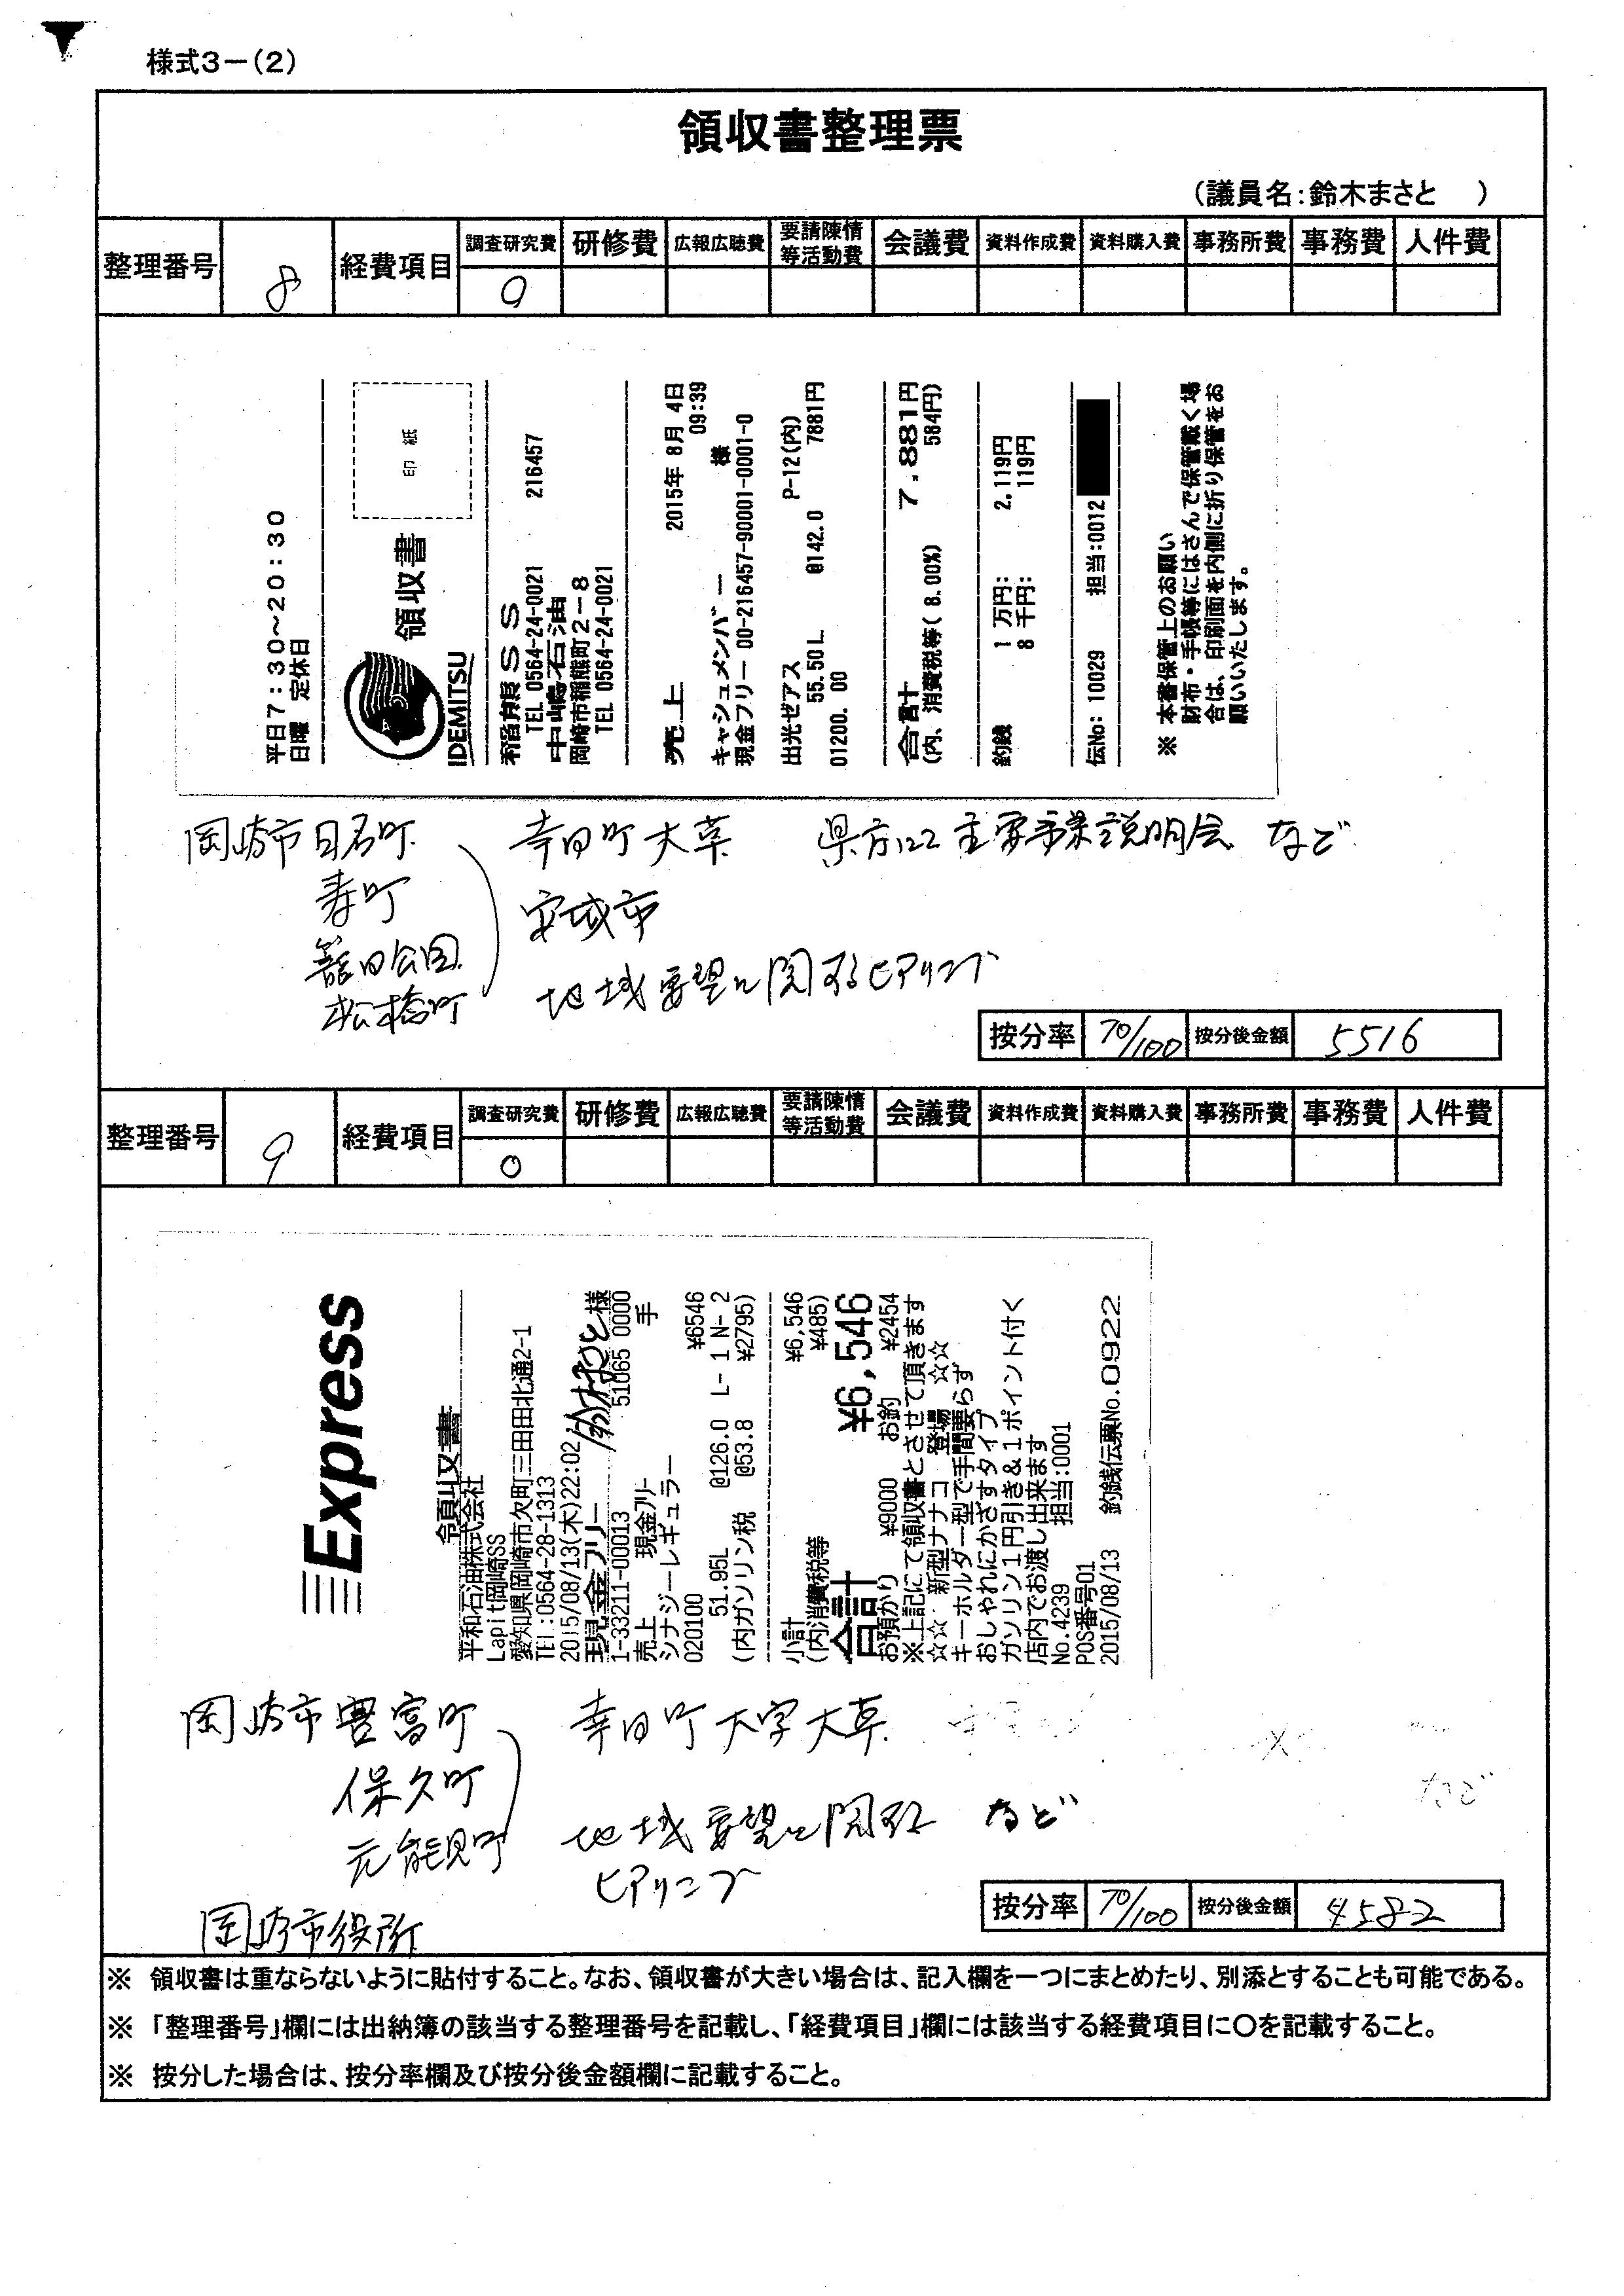 様式3－(2)
領収書整理票
(議員名：鈴木まさと　)
整理番号 8 経費項目 調査研究費 研修費 広報広聴費 要請陳情等活動費 会議費 資料作成費 資料購入費 事務所費 事務費 人件費
○
平日7:30~20:30
日曜 定休日
IDEMITSU 領収書 印紙
稲熊SS 216457
TEL 0564-24-0021
中嶋石油
岡崎市稲熊町2-8
TEL 0564-24-0021
売上 2015年 8月 4日
09:39
キャシュメンバー 様
現金フリー 00-216457-90001-0001-0
出光ゼアス P-12(内)
55.50L @142.0 7881円
01200. 00
合計 7,881円
(内、消費税等( 8.00%) 584円)
釣銭 1万円: 2,119円
8千円: 119円
伝No: 10029 担当:0012
※ 本書保管上のお願い
財布・手帳等にはさんで保管戴く場
合は、印刷面を内側に折り保管をお
願いいたします。
岡崎市日名町 幸田町大草 県 主要事業説明会 など
寿町 安城市
籠田公園
松橋町 地域要望に関するヒアリング
按分率 70/100 按分後金額 5516
整理番号 9 経費項目 調査研究費 研修費 広報広聴費 要請陳情等活動費 会議費 資料作成費 資料購入費 事務所費 事務費 人件費
○
Express
領収書
平和石油株式会社
Lapit岡崎SS
愛知県岡崎市欠町三田田北通2-1
TEL:0564-28-1313
2015/08/13(木)22:02
現金フリー 鈴木まさと様
1-33211-00013 51065 0000
売上 現金フリー 手
シナジーレギュラー
020100 ¥6546
51.95L @126.0 L- 1 N- 2
(内ガソリン税 @53.8 ¥2795)
小計 ¥6,546
(内消費税等 ¥485)
合計 ¥6,546
お預かり ¥9000 お釣 ¥2454
※上記にて領収書とさせて頂きます
☆☆☆ 新型ナナコ 登場 ☆☆☆
キーホルダー型で手間要らず
おしゃれにかざすタイプ
ガソリン1円引き&1ポイント付く
店内でお渡し出来ます
No.4239 担当:0001
POS番号01
2015/08/13 釣銭伝票No.0922
岡崎市豊富町 幸田町大字大草
保久町
元能見町 地域要望に関する など
ヒアリング
など
岡崎市役所
按分率 70/100 按分後金額 4582
※ 領収書は重ならないように貼付すること。なお、領収書が大きい場合は、記入欄を一つにまとめたり、別添とすることも可能である。
※ 「整理番号」欄には出納簿の該当する整理番号を記載し、「経費項目」欄には該当する経費項目に○を記載すること。
※ 按分した場合は、按分率欄及び按分後金額欄に記載すること。